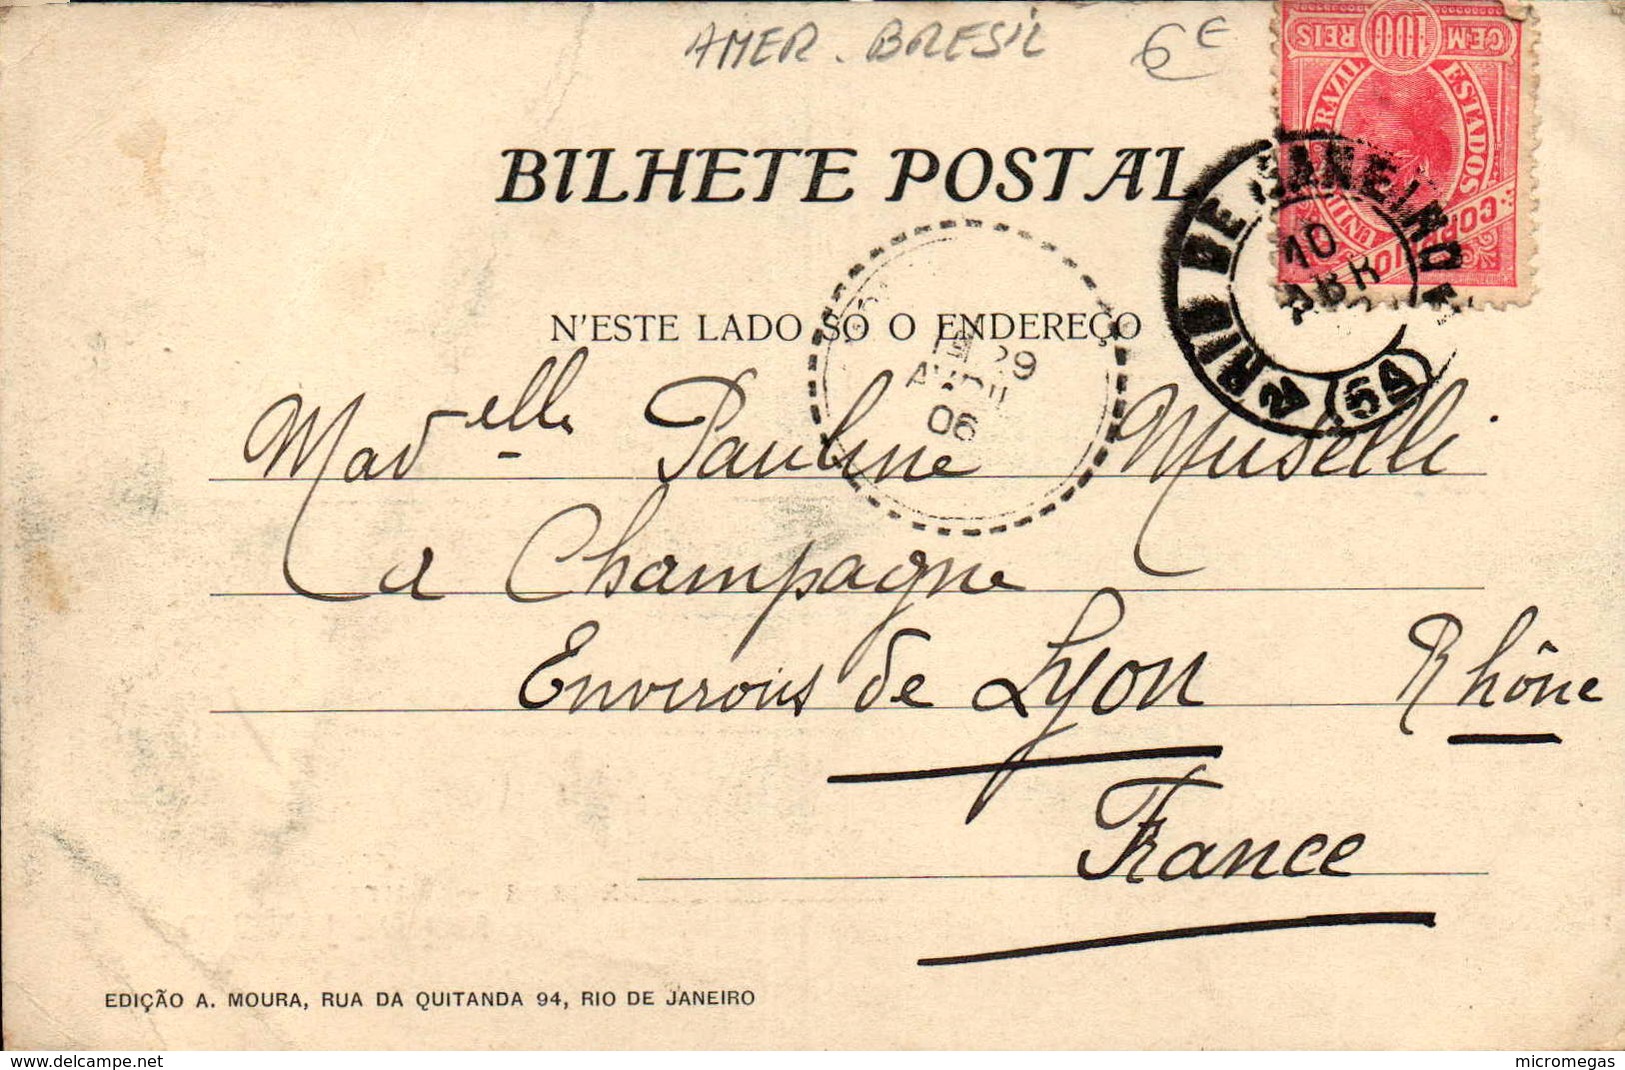 AMER. BRESIL 6€
CEM 100 REIS
ESTADOS UNIDOS BRAZIL
CORREIO
BILHETE POSTAL
RIO DE JANEIRO
10
ABR
5A
N'ESTE LADO SÓ O ENDEREÇO
29
AVRIL
06
Mad elle Pauline Muselli
a Champagne
Environs de Lyon Rhône
France
EDIÇÃO A. MOURA, RUA DA QUITANDA 94, RIO DE JANEIRO
www.delcampe.net
micromegas